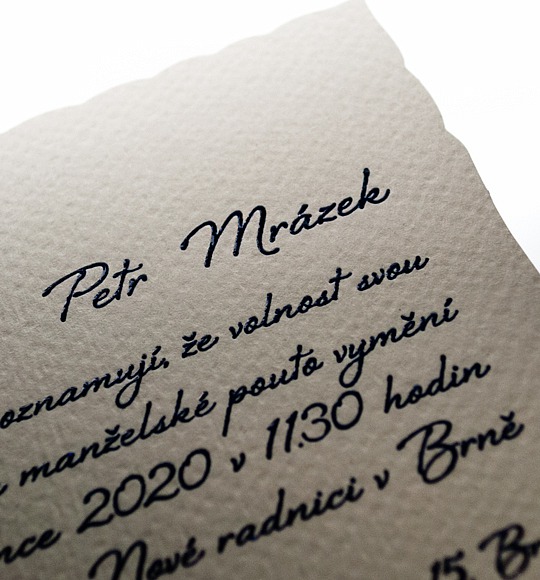 Petr Mrázek
oznamují, že volnost svou
manželské pouto vymění
nce 2020 v 11.30 hodin
Nové radnici v Brně
15 Br